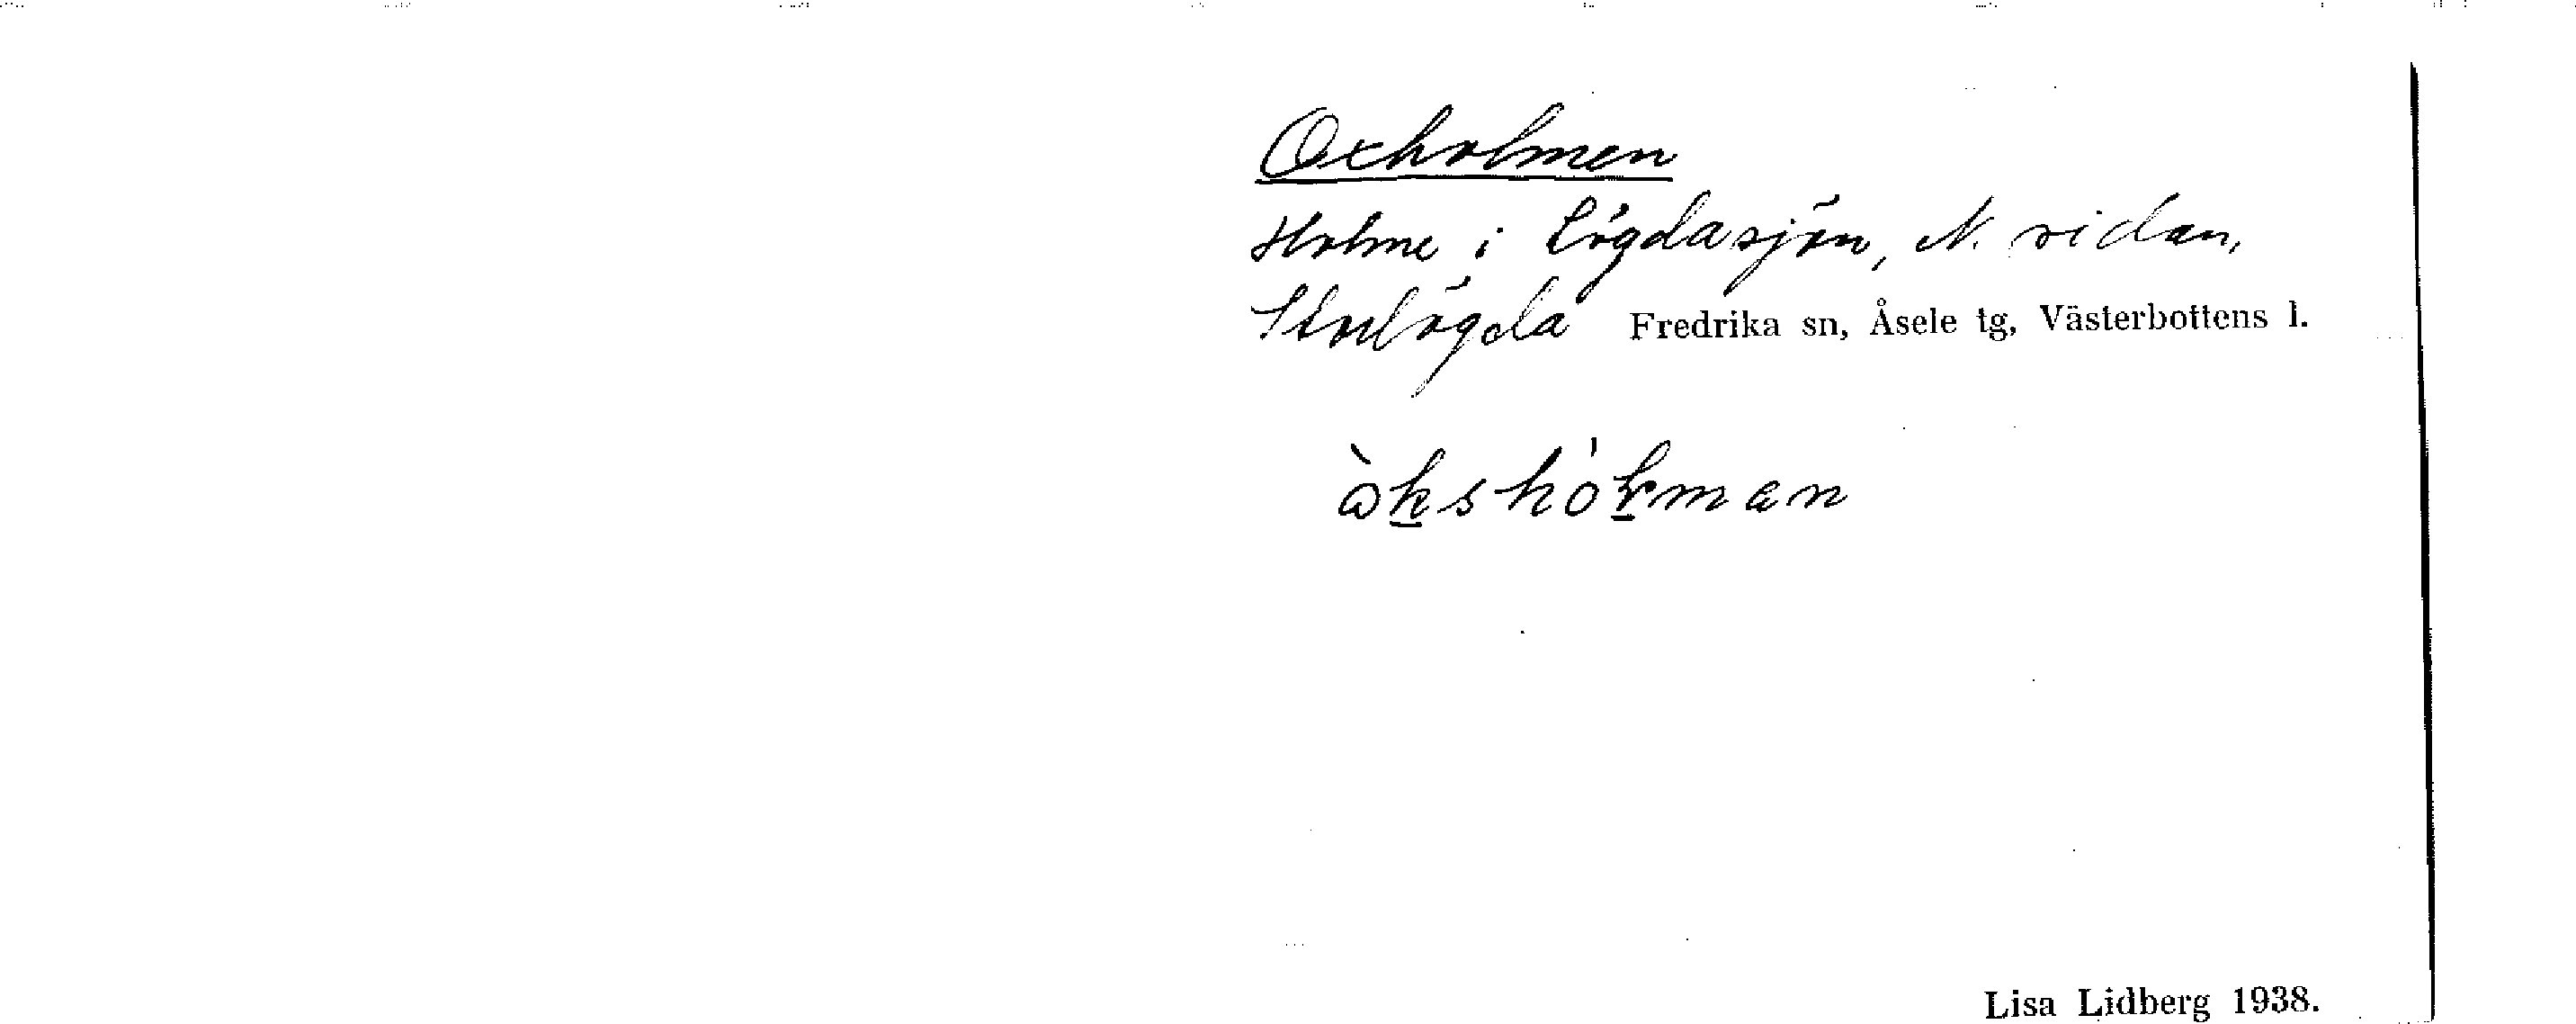 Oxholmen
Holme i Lögdasjön, N. sidan,
Storlögda Fredrika sn, Åsele tg, Västerbottens l.
Lisa Lidberg 1938.